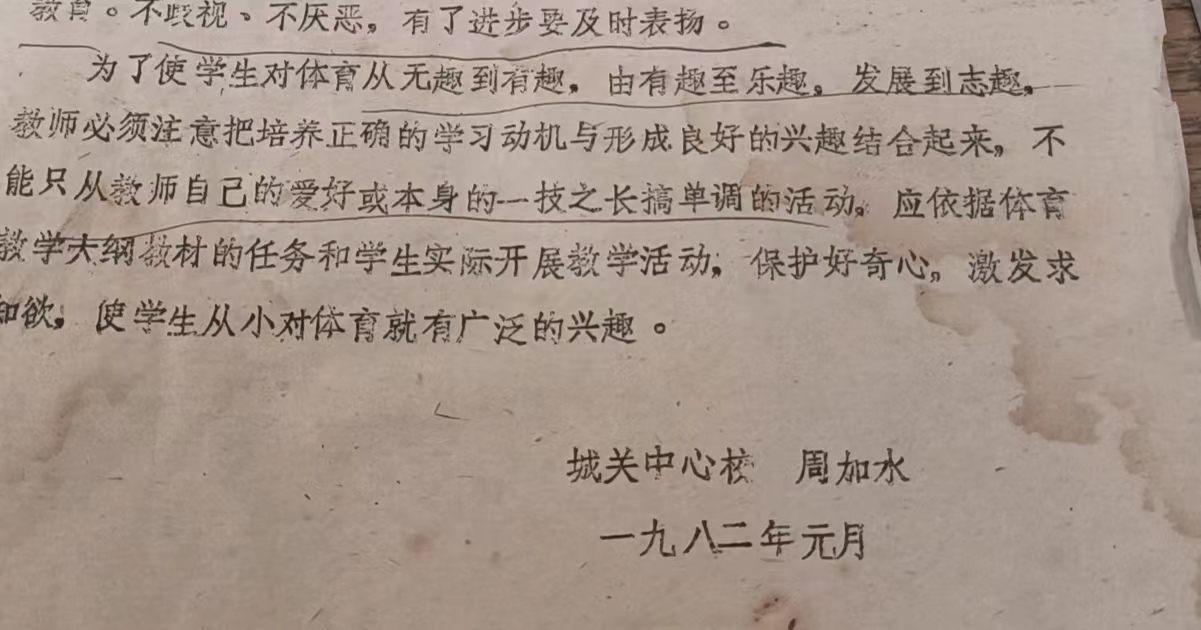 教育。不歧视、不厌恶，有了进步要及时表扬。
为了使学生对体育从无趣到有趣，由有趣至乐趣。发展到志趣，
教师必须注意把培养正确的学习动机与形成良好的兴趣结合起来，不
能只从教师自己的爱好或本身的一技之长搞单调的活动，应依据体育
教学大纲教材的任务和学生实际开展教学活动，保护好奇心，激发求
知欲，使学生从小对体育就有广泛的兴趣。
城关中心校　周加水
一九八二年元月